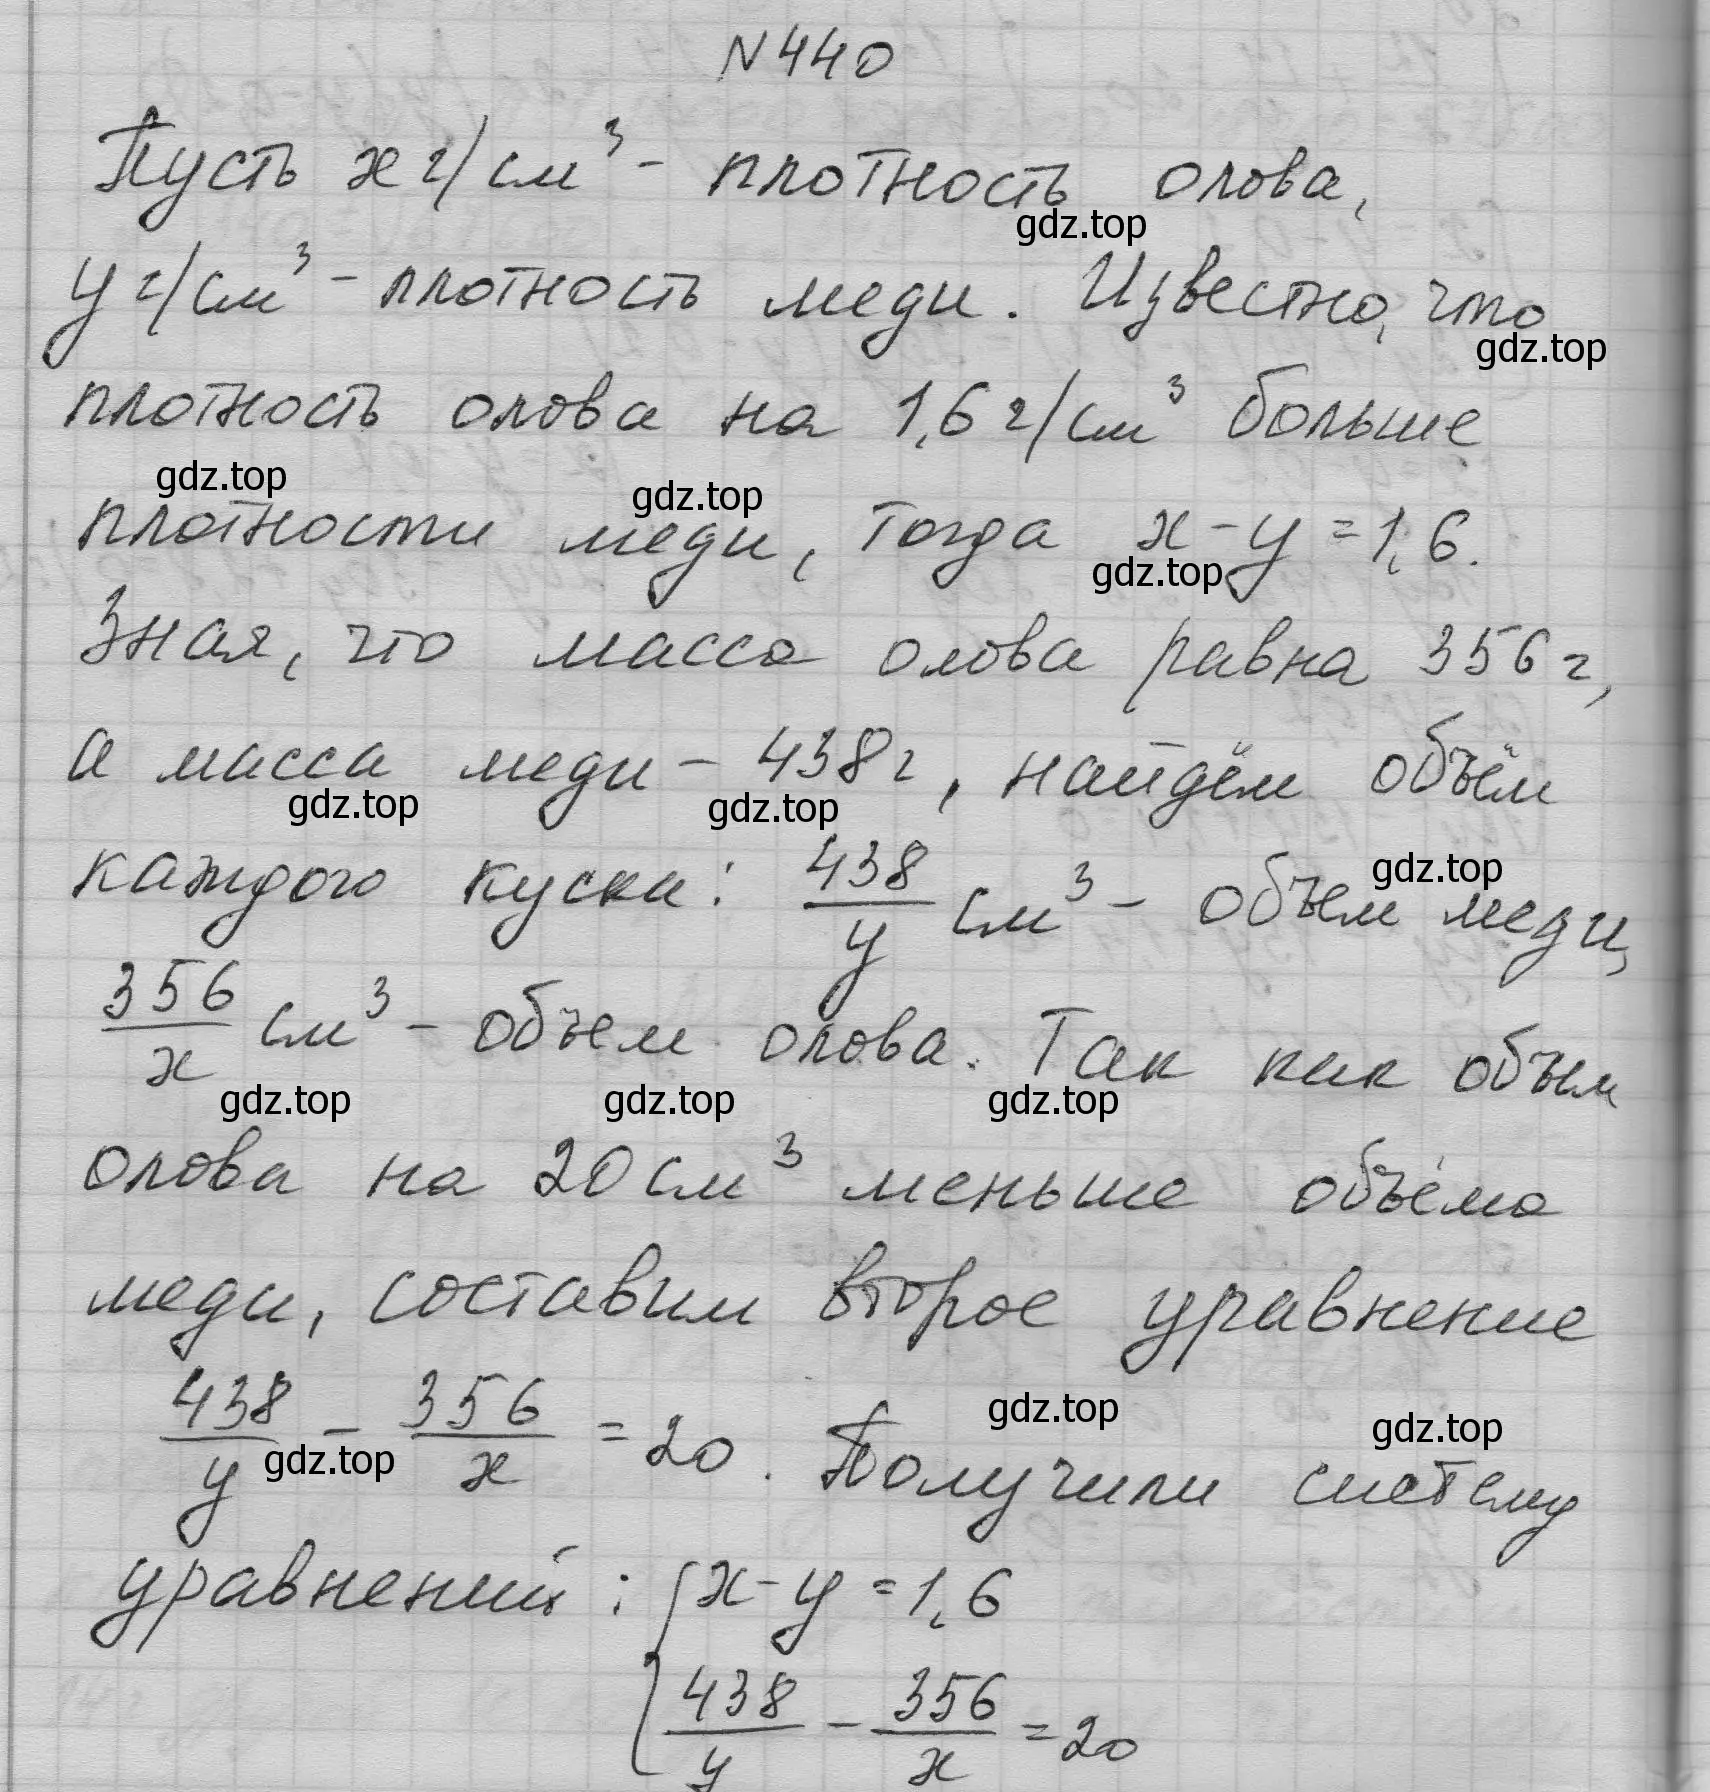 N 440
Пусть x г/см³ - плотность олова,
gdz.top
y г/см³ - плотность меди. Известно, что
gdz.top
плотность олова на 1,6 г/см³ больше
gdz.top gdz.top
плотности меди, тогда x - y = 1,6.
gdz.top
Зная, что масса олова равна 356 г,
а масса меди - 438 г, найдём объём
gdz.top gdz.top
каждого куска: 438/y см³ - объем меди,
gdz.top
356/x см³ - объем олова. Так как объем
gdz.top gdz.top gdz.top
олова на 20 см³ меньше объёма
меди, составим второе уравнение
438/y - 356/x = 20. Получили систему
gdz.top gdz.top gdz.top
уравнений: { x - y = 1,6
438/y - 356/x = 20